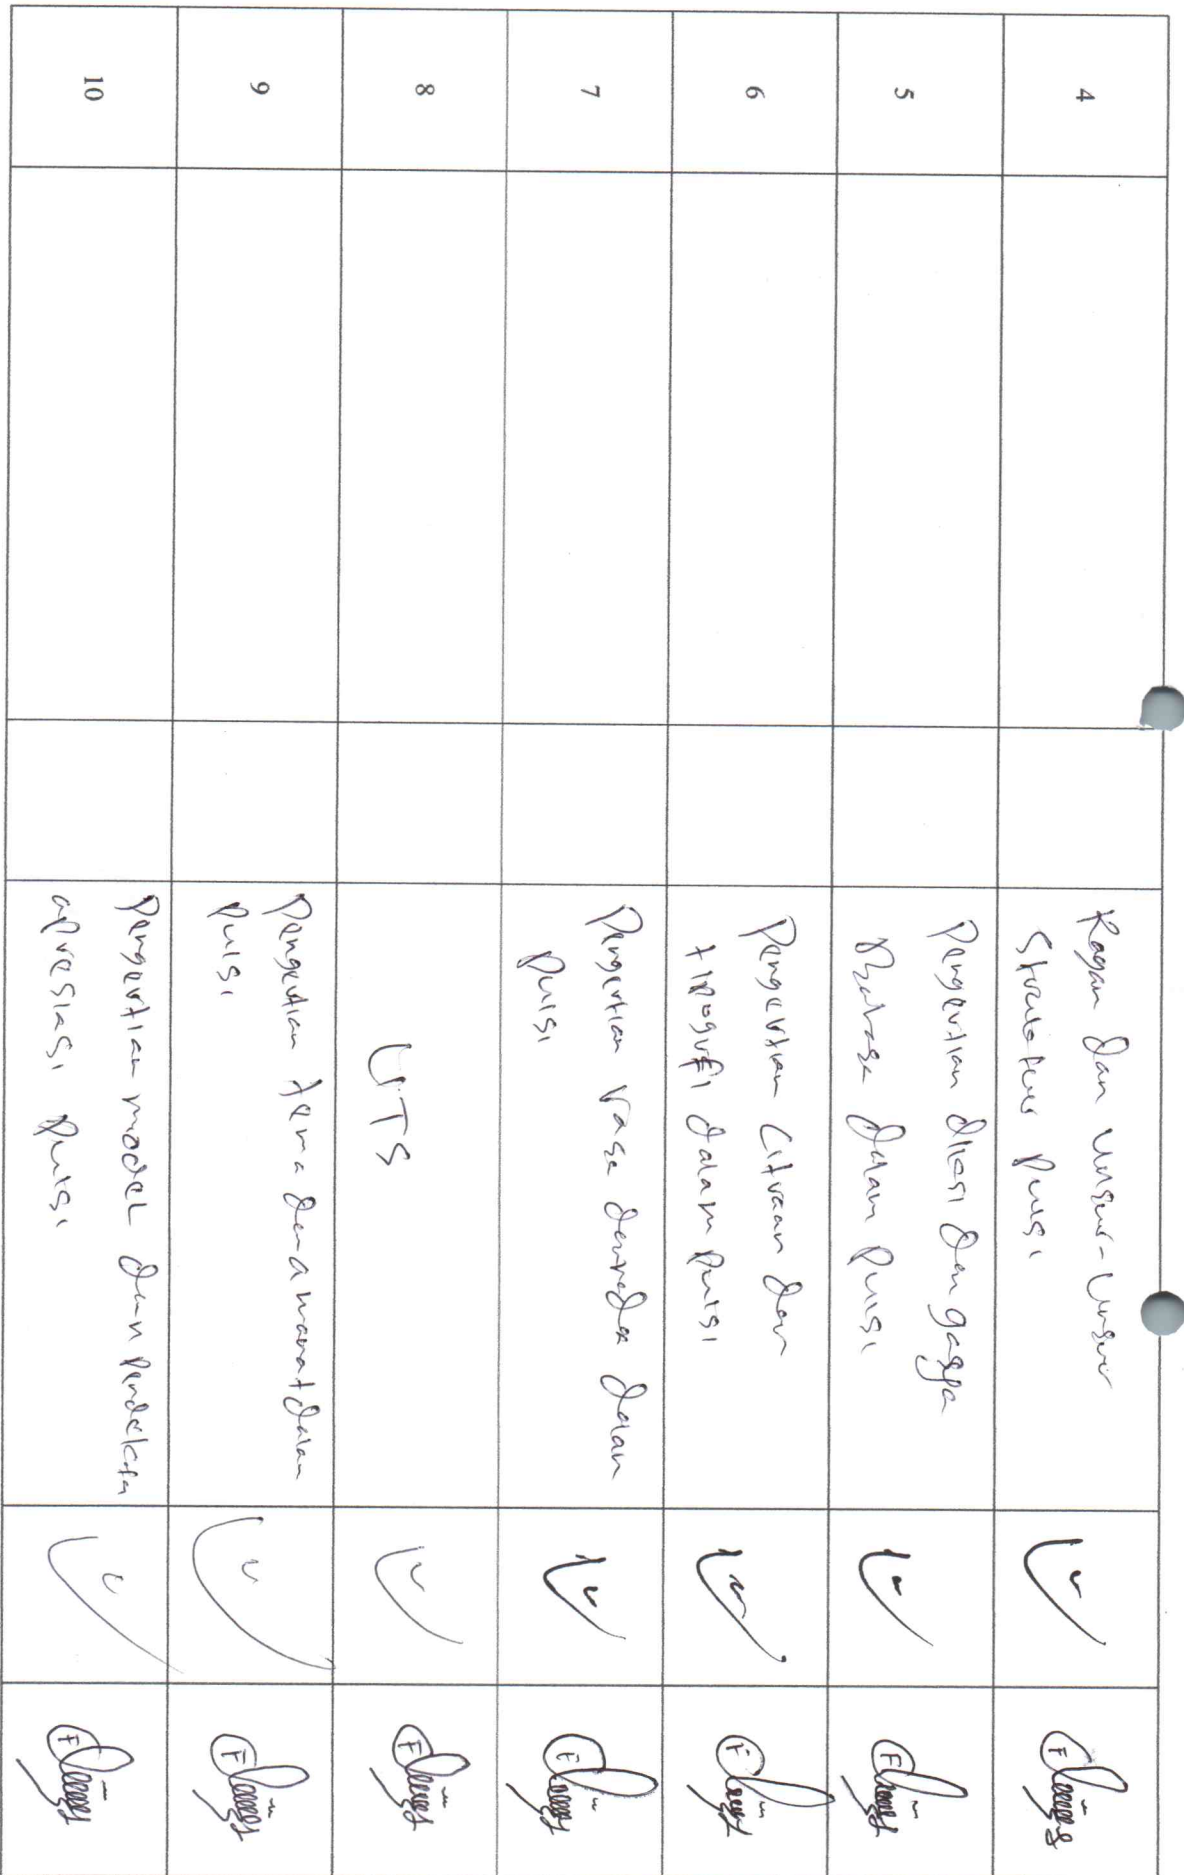 4
Ragam dan Unsur-Unsur
Struktur Puisi
5
Pengertian diksi dan gaya
Bahasa dalam Puisi
6
Pengertian Citraan dan
tipografi dalam Puisi
7
Pengertian rasa dan nada dalam
Puisi
8
UTS
9
Pengertian tema dan amanat dalam
Puisi
10
Pengertian model dan Pendekatan
apresiasi Puisi